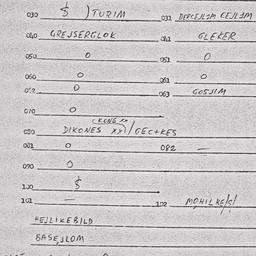 030 $ ) TURIM 031 DERCEJLIM CEJLIM
040 GREJSERGLOK 041 GLEKER
050 0 051 0
060 0 061 0
062 0 063 GOSJIM
070 0
080 DIKONES XXI/GECTKES
081 0 082 —
090 0
100 $
101 — 102 MOHILKE/S/
HEJLIKEBILD
BASEJLOM